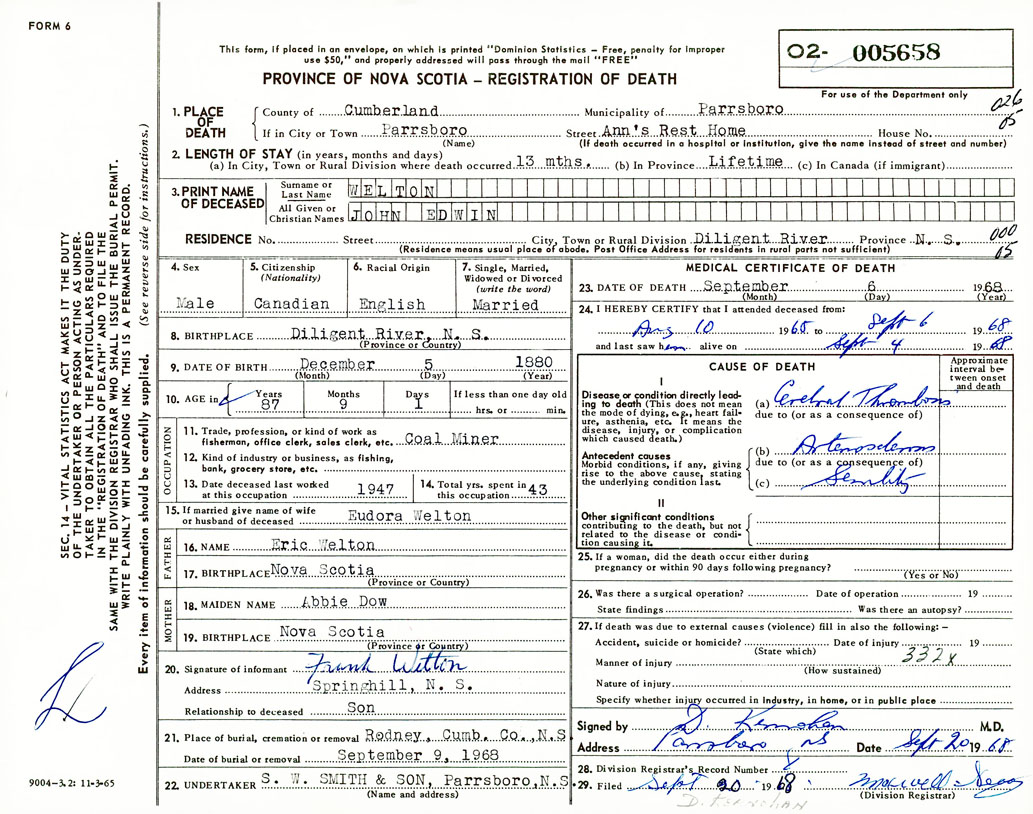 FORM 6
This form, if placed in an envelope, on which is printed "Dominion Statistics – Free, penalty for improper
use $50," and properly addressed will pass through the mail "FREE"
PROVINCE OF NOVA SCOTIA – REGISTRATION OF DEATH
02- 005658
For use of the Department only
026
05
1. PLACE OF DEATH
County of Cumberland Municipality of Parrsboro
If in City or Town Parrsboro Street Ann's Rest Home House No.
(Name) (If death occurred in a hospital or institution, give the name instead of street and number)
2. LENGTH OF STAY (in years, months and days)
(a) In City, Town or Rural Division where death occurred 13 mths. (b) In Province Lifetime (c) In Canada (if immigrant)
3. PRINT NAME OF DECEASED
Surname or Last Name WELTON
All Given or Christian Names JOHN EDWIN
RESIDENCE No. Street City, Town or Rural Division Diligent River Province N. S.
(Residence means usual place of abode. Post Office Address for residents in rural parts not sufficient)
000
05
4. Sex
Male
5. Citizenship
(Nationality)
Canadian
6. Racial Origin
English
7. Single, Married,
Widowed or Divorced
(write the word)
Married
8. BIRTHPLACE Diligent River, N. S.
(Province or Country)
9. DATE OF BIRTH December 5 1880
(Month) (Day) (Year)
10. AGE in Years Months Days If less than one day old
87 9 1 hrs. or min.
OCCUPATION
11. Trade, profession, or kind of work as
fisherman, office clerk, sales clerk, etc. Coal Miner
12. Kind of industry or business, as fishing,
bank, grocery store, etc.
13. Date deceased last worked
at this occupation 1947
14. Total yrs. spent in
this occupation 43
15. If married give name of wife
or husband of deceased Eudora Welton
FATHER
16. NAME Eric Welton
17. BIRTHPLACE Nova Scotia
(Province or Country)
MOTHER
18. MAIDEN NAME Abbie Dow
19. BIRTHPLACE Nova Scotia
(Province or Country)
20. Signature of informant Frank Welton
Address Springhill, N. S.
Relationship to deceased Son
21. Place of burial, cremation or removal Rodney, Cumb. Co., N.S
Date of burial or removal September 9, 1968
22. UNDERTAKER S. W. SMITH & SON, Parrsboro, N.S
(Name and address)
MEDICAL CERTIFICATE OF DEATH
23. DATE OF DEATH September 6 1968
(Month) (Day) (Year)
24. I HEREBY CERTIFY that I attended deceased from:
Aug 10 1968 to Sept 6 1968
and last saw him alive on Sept 4 1968
CAUSE OF DEATH
Approximate
interval be-
tween onset
and death
I
Disease or condition directly lead-
ing to death (This does not mean
the mode of dying, e.g., heart fail-
ure, asthenia, etc. It means the
disease, injury, or complication
which caused death.)
(a) Cerebral Thrombosis
due to (or as a consequence of)
Antecedent causes
Morbid conditions, if any, giving
rise to the above cause, stating
the underlying condition last.
(b) Arteriosclerosis
due to (or as a consequence of)
(c) Senility
II
Other significant conditions
contributing to the death, but not
related to the disease or condi-
tion causing it.
25. If a woman, did the death occur either during
pregnancy or within 90 days following pregnancy?
(Yes or No)
26. Was there a surgical operation? Date of operation 19
State findings Was there an autopsy?
27. If death was due to external causes (violence) fill in also the following: –
Accident, suicide or homicide? Date of injury 19
(State which)
332X
Manner of injury
(How sustained)
Nature of injury
Specify whether injury occurred in industry, in home, or in public place
Signed by D. Kernohan M.D.
Address Parrsboro NS Date Sept 20 1968
28. Division Registrar's Record Number
29. Filed Sept 20 1968
(Division Registrar)
D. KERNOHAN
SEC. 14 – VITAL STATISTICS ACT MAKES IT THE DUTY
OF THE UNDERTAKER OR PERSON ACTING AS UNDER-
TAKER TO OBTAIN ALL THE PARTICULARS REQUIRED
IN THE "REGISTRATION OF DEATH" AND TO FILE THE
SAME WITH THE DIVISION REGISTRAR WHO SHALL ISSUE THE BURIAL PERMIT.
WRITE PLAINLY WITH UNFADING INK. THIS IS A PERMANENT RECORD.
Every item of information should be carefully supplied. (See reverse side for instructions.)
9004–3.2: 11-3-65